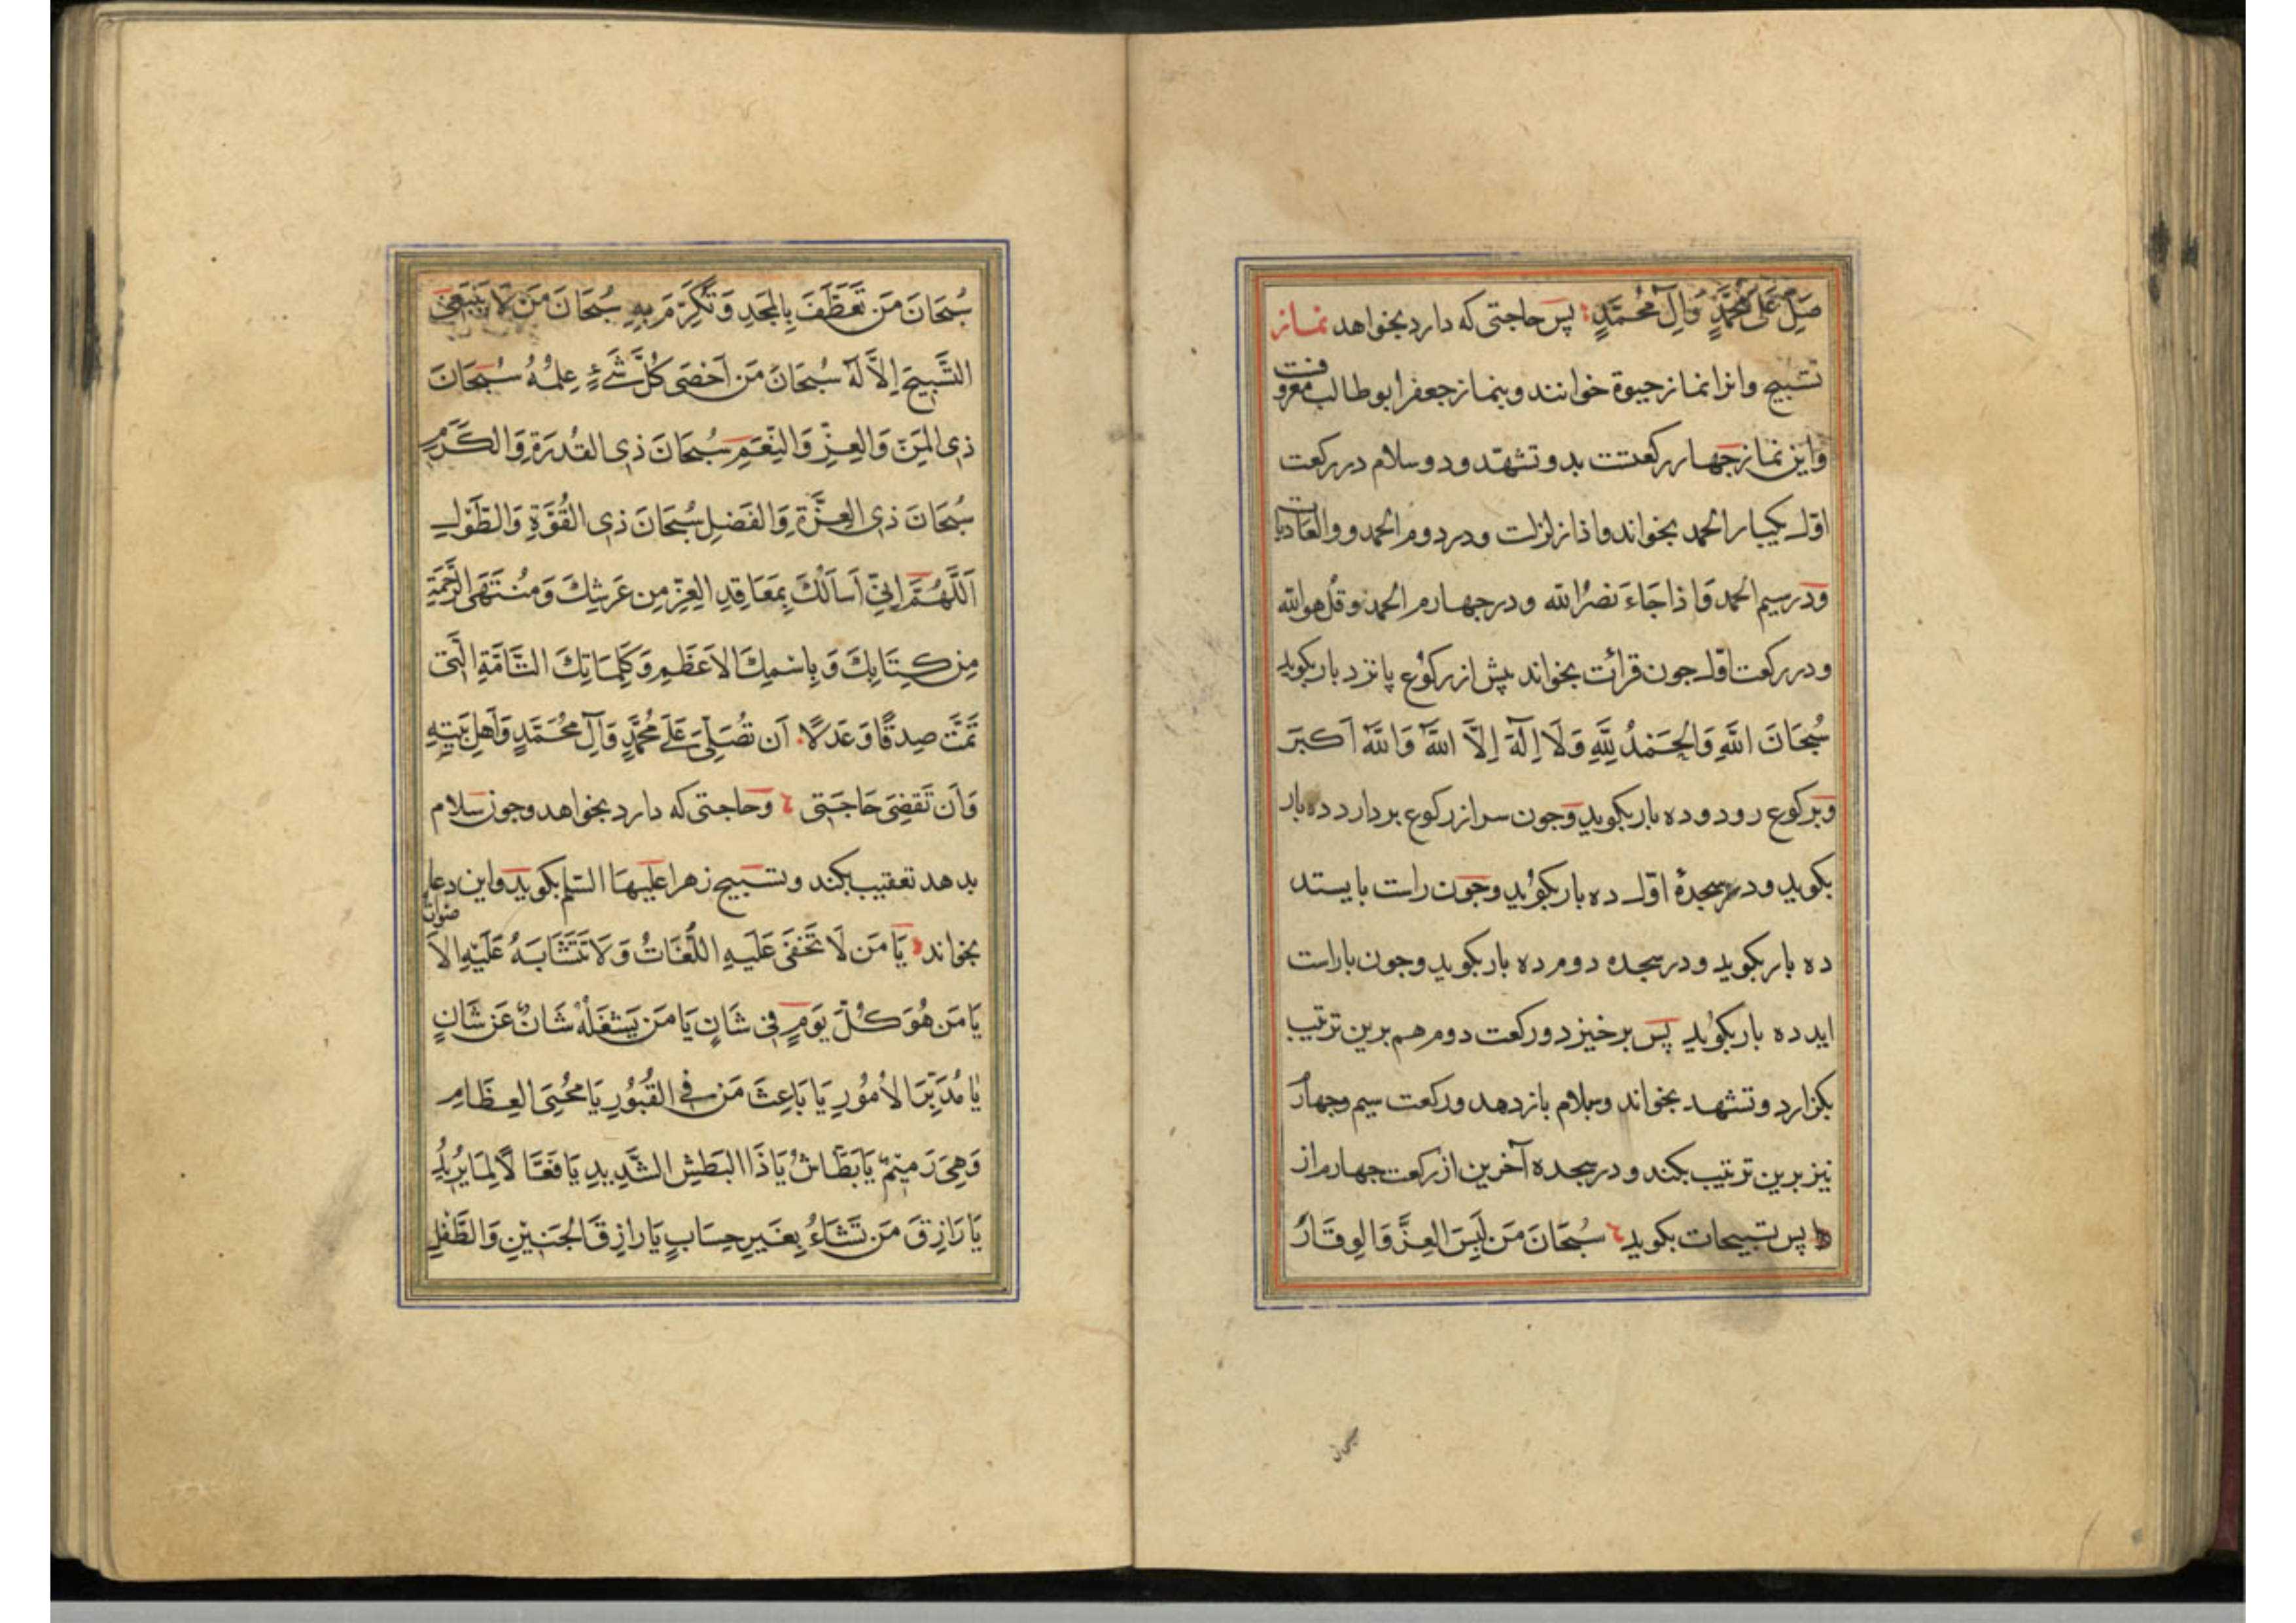 صَلِّ عَلَى مُحَمَّدٍ وَآلِ مُحَمَّدٍ پس حاجتی که دارد بخواهد نماز
تسبیح وانرا نماز حبوة خوانند و بنماز جعفر ابوطالب معروفست
واین نماز جهار رکعتست بدو تشهّد و دو سلام در رکعت
اوّل یکبار الحمد بخواند واذا زلزلت ودر دوم الحمد و والعادیات
ودر سیم الحمد وَاذا جَاءَ نصْرُ الله ودر جهارم الحمد و قل هو الله
ودر رکعت اوّل جون قرائت بخواند پیش از رکوُع پانزد بار بکوید
سُبْحَانَ اللَّهِ وَالْحَمْدُ لِلَّهِ وَلَا اِلَهَ اِلَّا اللَّهُ وَاللَّهُ اَكبَرَ
وبرکوع رود و ده بار بکوید وجون سر از رکوع بردارد ده بار
بکوید ودر سجدهٔ اوّل ده بار بکوُید وجون راست بایستد
ده بار بکوید ودر سجده دوم ده بار بکوید وجون باراست
اید ده بار بکوُید پس برخیزد ورکعت دوم هم برین ترتیب
بکزارد و تشهد بخواند وسلام بازدهد ورکعت سیم وجهارم
نیز برین ترتیب بکند و در سجده آخرین از رکعت جهارم از
پس تسبیحات بکوید سُبْحَانَ مَن لَبِسَ العِزَّ وَالوِقَارَ
سُبْحَانَ مَن تَعَطَّفَ بِالمَجدِ وَتَكَرَّمَ بِهِ سُبْحَانَ مَن لَا يَنبَغِي
التَّسبِيحَ اِلَّا لَهُ سُبْحَانَ مَن اَحْصَى كُلَّ شَيءٍ عِلمُهُ سُبحَانَ
ذِي المَنِّ وَالعِزِّ وَالنِّعَمِ سُبْحَانَ ذِي القُدرَةِ وَالكَرَمِ
سُبْحَانَ ذِي العِزَّةِ وَالفَضلِ سُبحَانَ ذِي القُوَّةِ وَالطَّوْلِ
اَللَّهُمَّ اِنِّي اَسأَلُكَ بِمَعَاقِدِ العِزِّ مِن عَرشِكَ وَمُنتَهَى الرَّحْمَةِ
مِن كِتَابِكَ وَبِاسْمِكَ الاَعظَمِ وَكَلِمَاتِكَ التَّامَّةِ الَّتِي
تَمَّت صِدقًا وَعَدلًا اَن تُصَلِّيَ عَلَى مُحَمَّدٍ وَآلِ مُحَمَّدٍ وَاَهلِ بَيتِهِ
وَاَن تَقضِيَ حَاجَتِي وحاجتی که دارد بخواهد وجون سلام
بدهد تعقیب بکند وتسبیح زهرا عَلَیهَا السّلم بکوید واین دعا
بخواند يَا مَن لَا تَخفَى عَلَيهِ اللُّغَاتُ وَلَا تَتَشَابَهُ عَلَيْهِ الاَصْوَاتُ
يَا مَن هُوَ كُلَّ يَومٍ فِي شَانٍ يَا مَن يَشْغَلُهُ شَانٌ عَن شَانٍ
يَا مُدَبِّرَ الاُمُورِ يَا بَاعِثَ مَن فِي القُبُورِ يَا مُحْيِيَ العِظَامِ
وَهِيَ رَمِيْمٌ يَا بَطَّاشُ يَا ذَا البَطشِ الشَّدِيدِ يَا فَعَّالًا لِمَا يُرِيْدُ
يَا رَازِقَ مَن تَشَاءُ بِغَيرِ حِسَابٍ يَا رازِقَ الجَنِيْنِ وَالطِّفْلِ